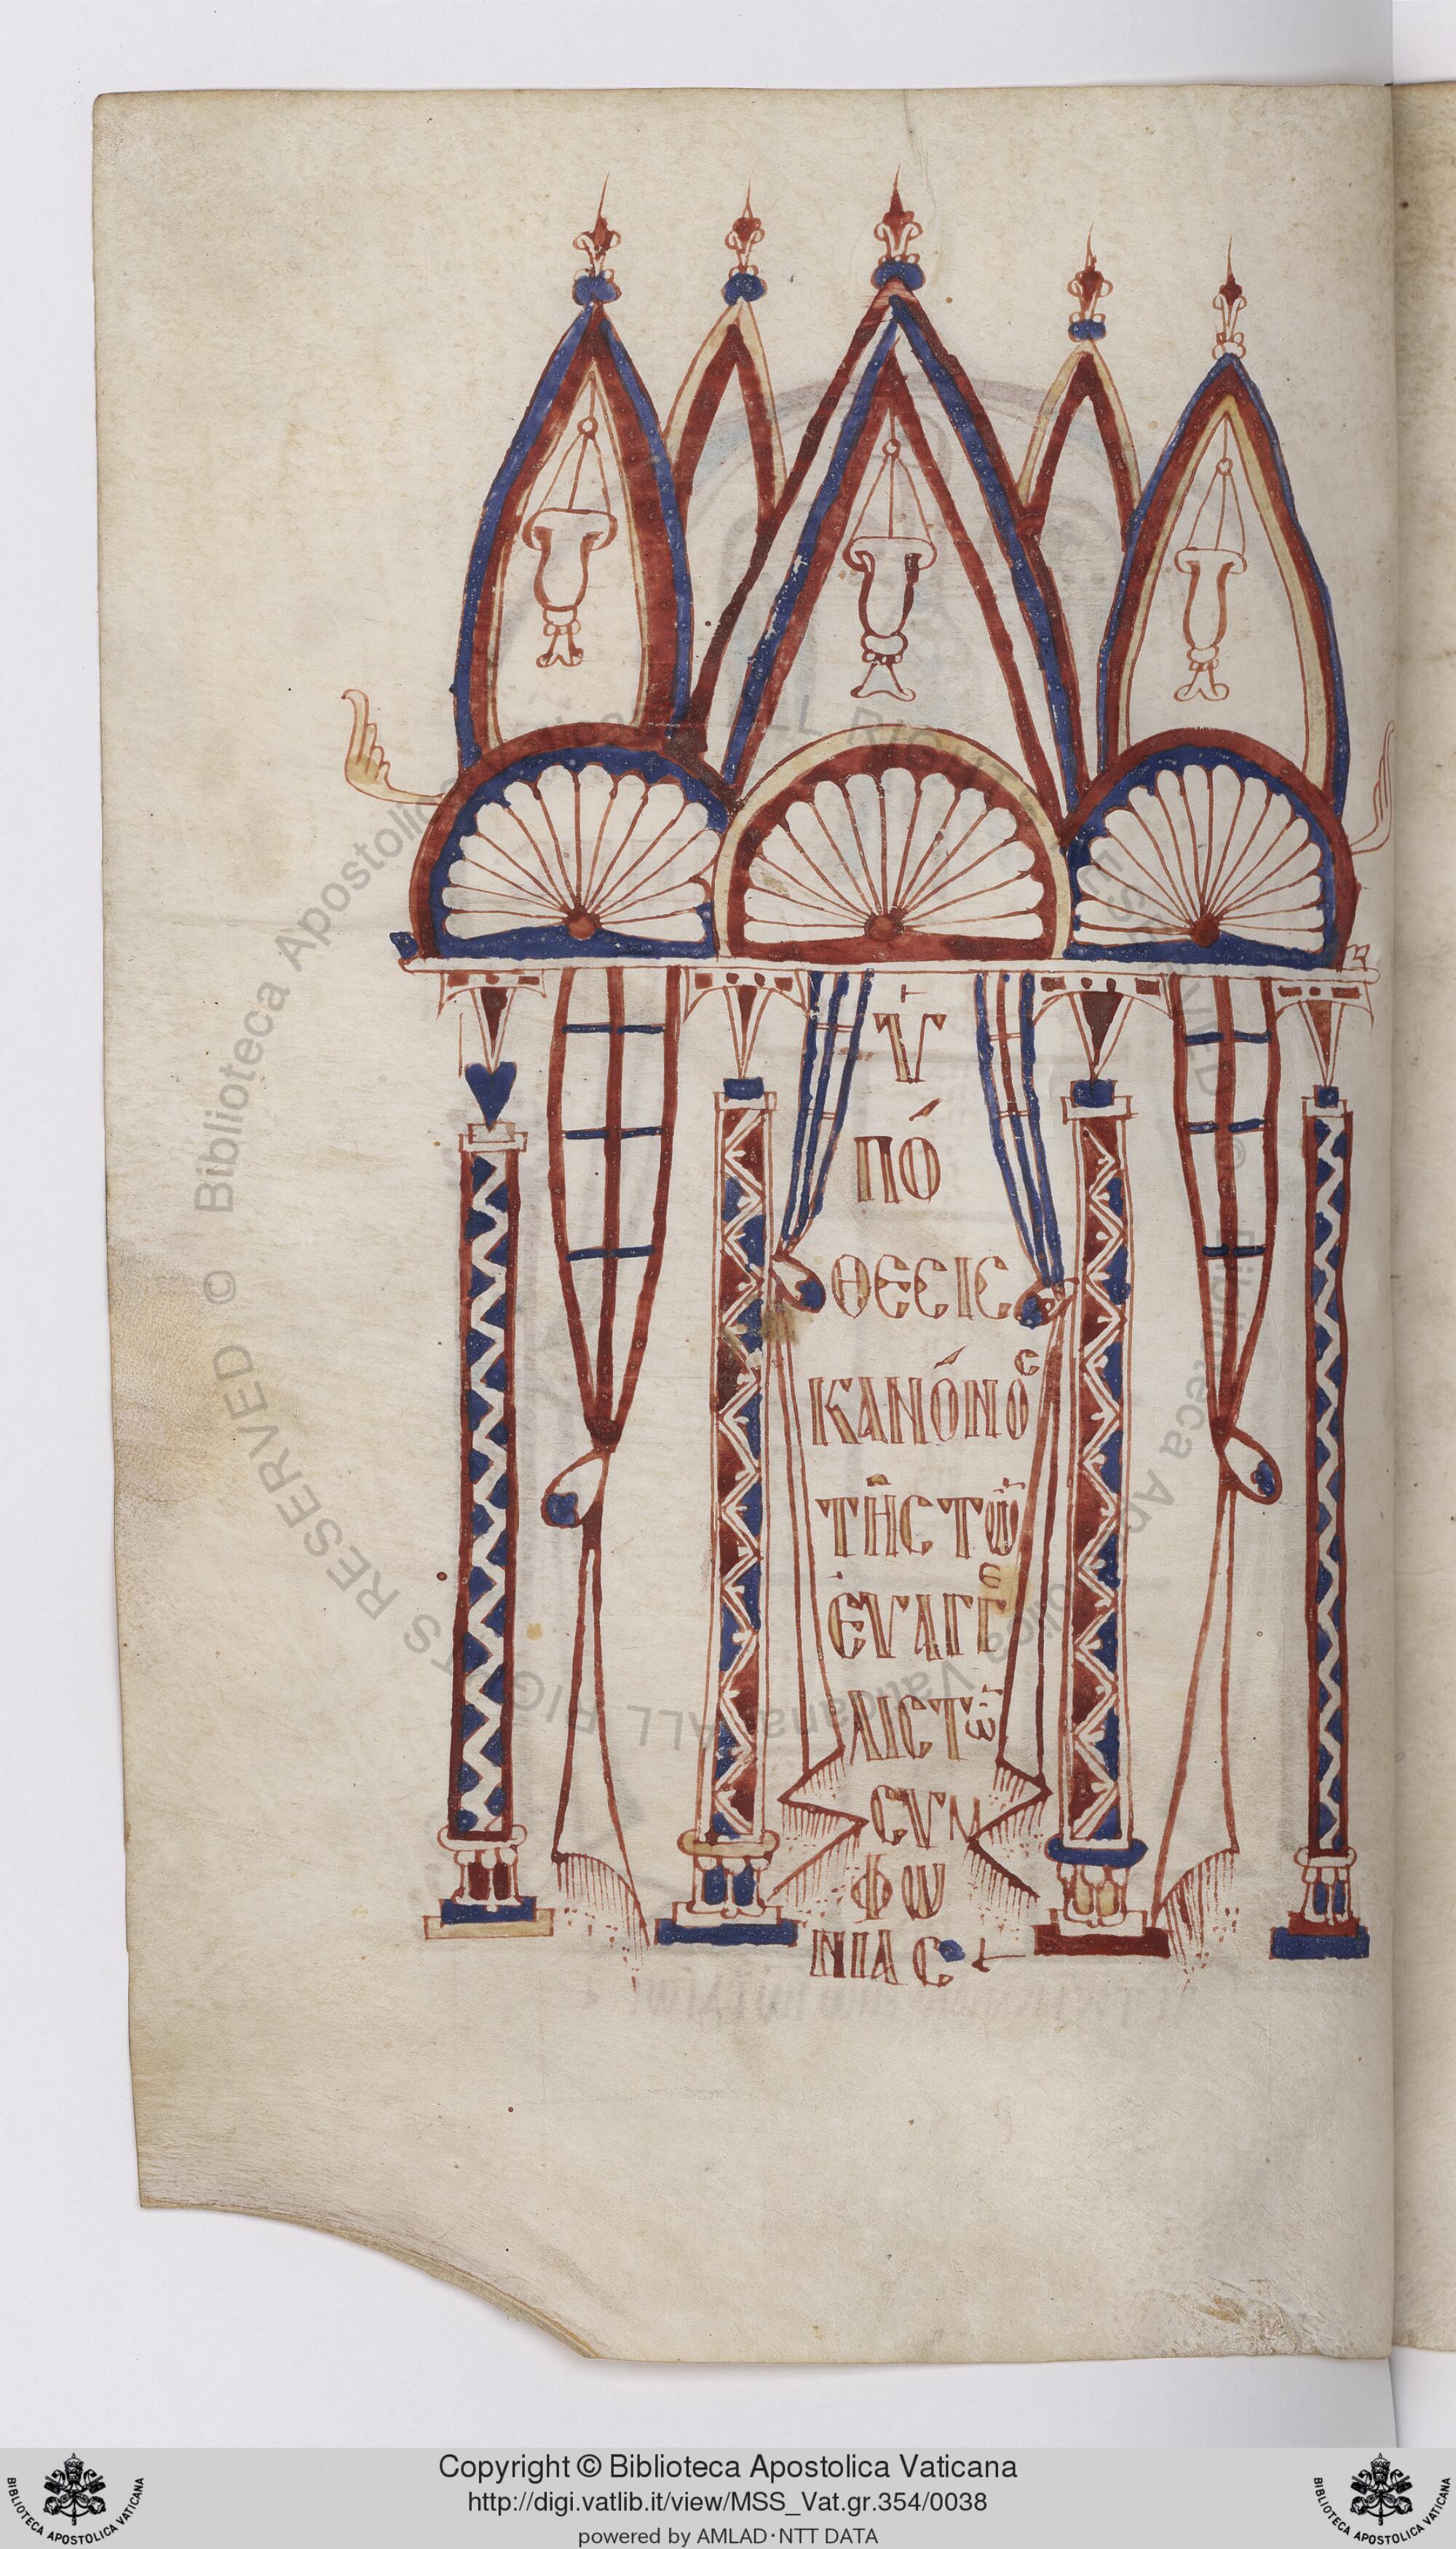 Ὑ
ΠΌ
ΘΕCΙC
ΚΑΝΌΝΟC
ΤΗ͂CΤΩ͂Ν
ἘΥΑΓΓΕ
ΛΙCΤΩ͂
CΥΜ
ΦΩ
ΝΙΑC
Copyright © Biblioteca Apostolica Vaticana
http://digi.vatlib.it/view/MSS_Vat.gr.354/0038
powered by AMLAD·NTT DATA
BIBLIOTECA APOSTOLICA VATICANA
BIBLIOTECA APOSTOLICA VATICANA
© Biblioteca Apostolica Vaticana ALL RIGHTS RESERVED
© Biblioteca Apostolica Vaticana ALL RIGHTS RESERVED